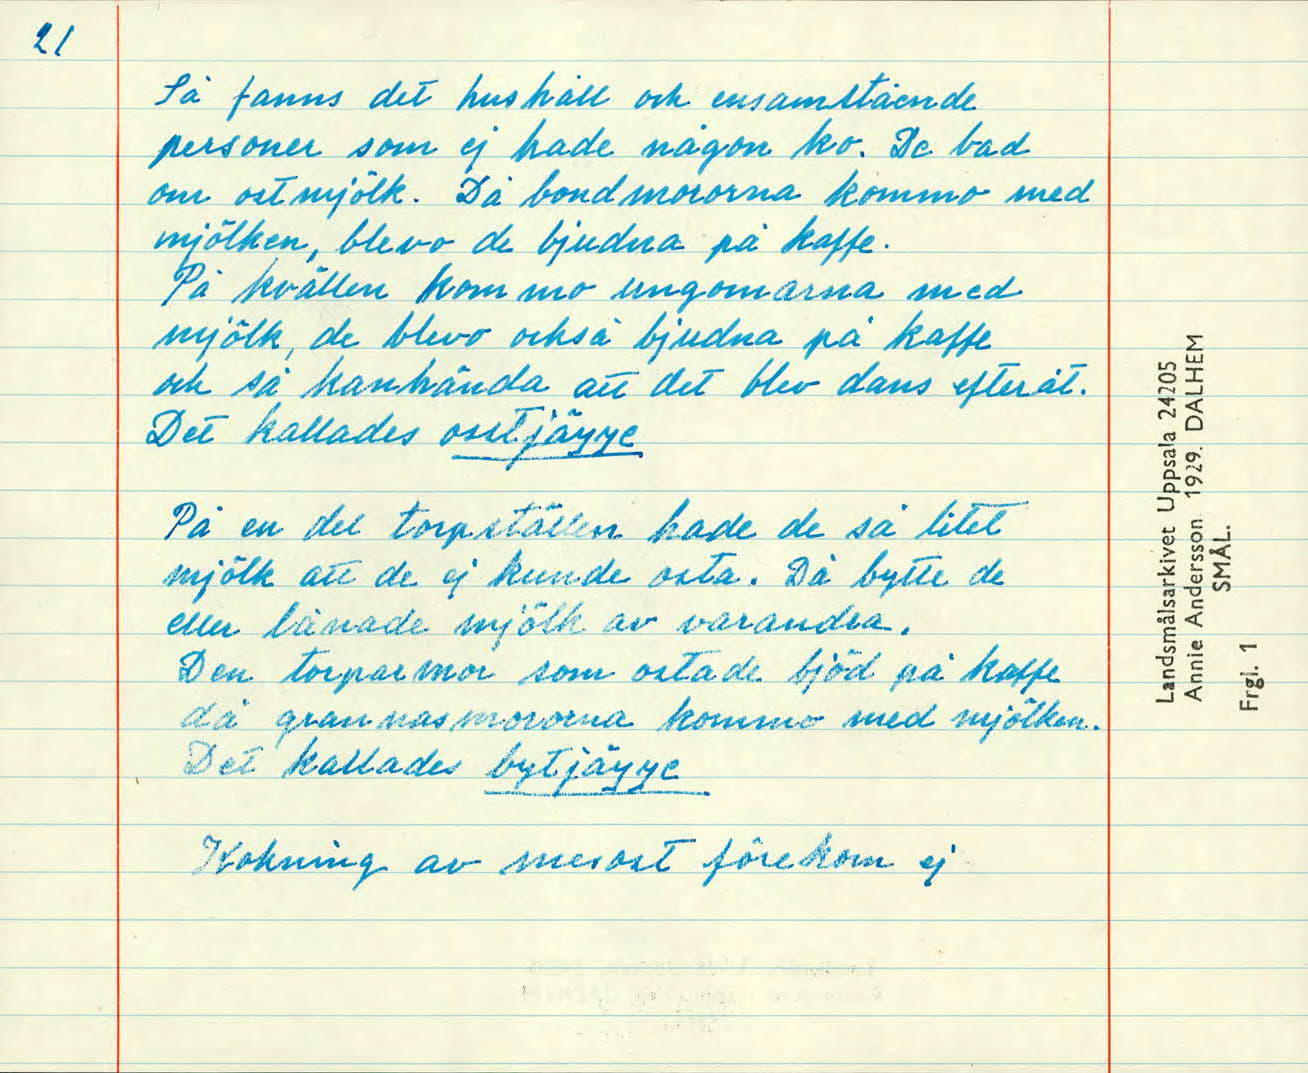 21
Så fanns det hushåll och ensamstående
personer som ej hade någon ko. De bad
om ostmjölk. Då bondmororna kommo med
mjölken, blevo de bjudna på kaffe.
På kvällen kommo ungomarna med
mjölk, de blevo också bjudna på kaffe
och så kanhända att det blev dans efteråt.
Det kallades osstjäyye
På en del torpställen hade de så litet
mjölk att de ej kunde osta. Då bytte de
eller lånade mjölk av varandra.
Den torparmor som ostade bjöd på kaffe
då grannasmororna kommo med mjölken.
Det kallades bytjäyye
Kokning av mesost förekom ej
Landsmålsarkivet Uppsala 24205
Annie Andersson 1929. DALHEM
SMÅL.
Frgl. 1